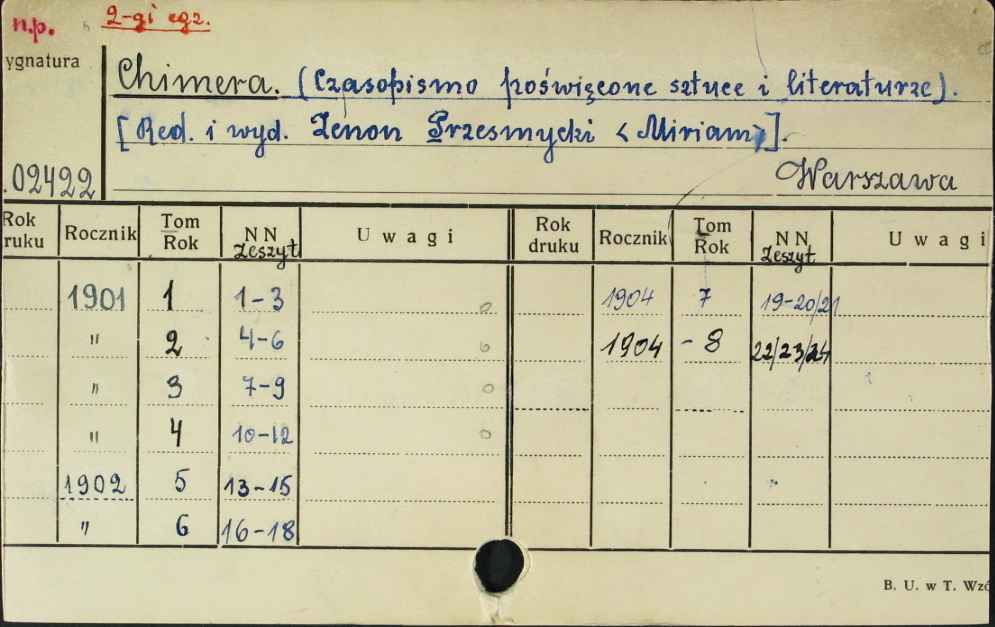 n.p. 2-gi egz.
ygnatura
Chimera. (Czasopismo poświęcone sztuce i literaturze).
[Red. i wyd. Zenon Przesmycki <Miriam>].
.02422 Warszawa
Rok ruku Rocznik Tom Rok NN Zeszyt Uwagi Rok druku Rocznik Tom Rok NN Zeszyt Uwagi
1901 1 1-3 0 1904 7 19-20/21
" 2 4-6 0 1904 - 8 22/23/24
" 3 7-9 0
" 4 10-12 0
1902 5 13-15
" 6 16-18
B. U. w T. Wzó